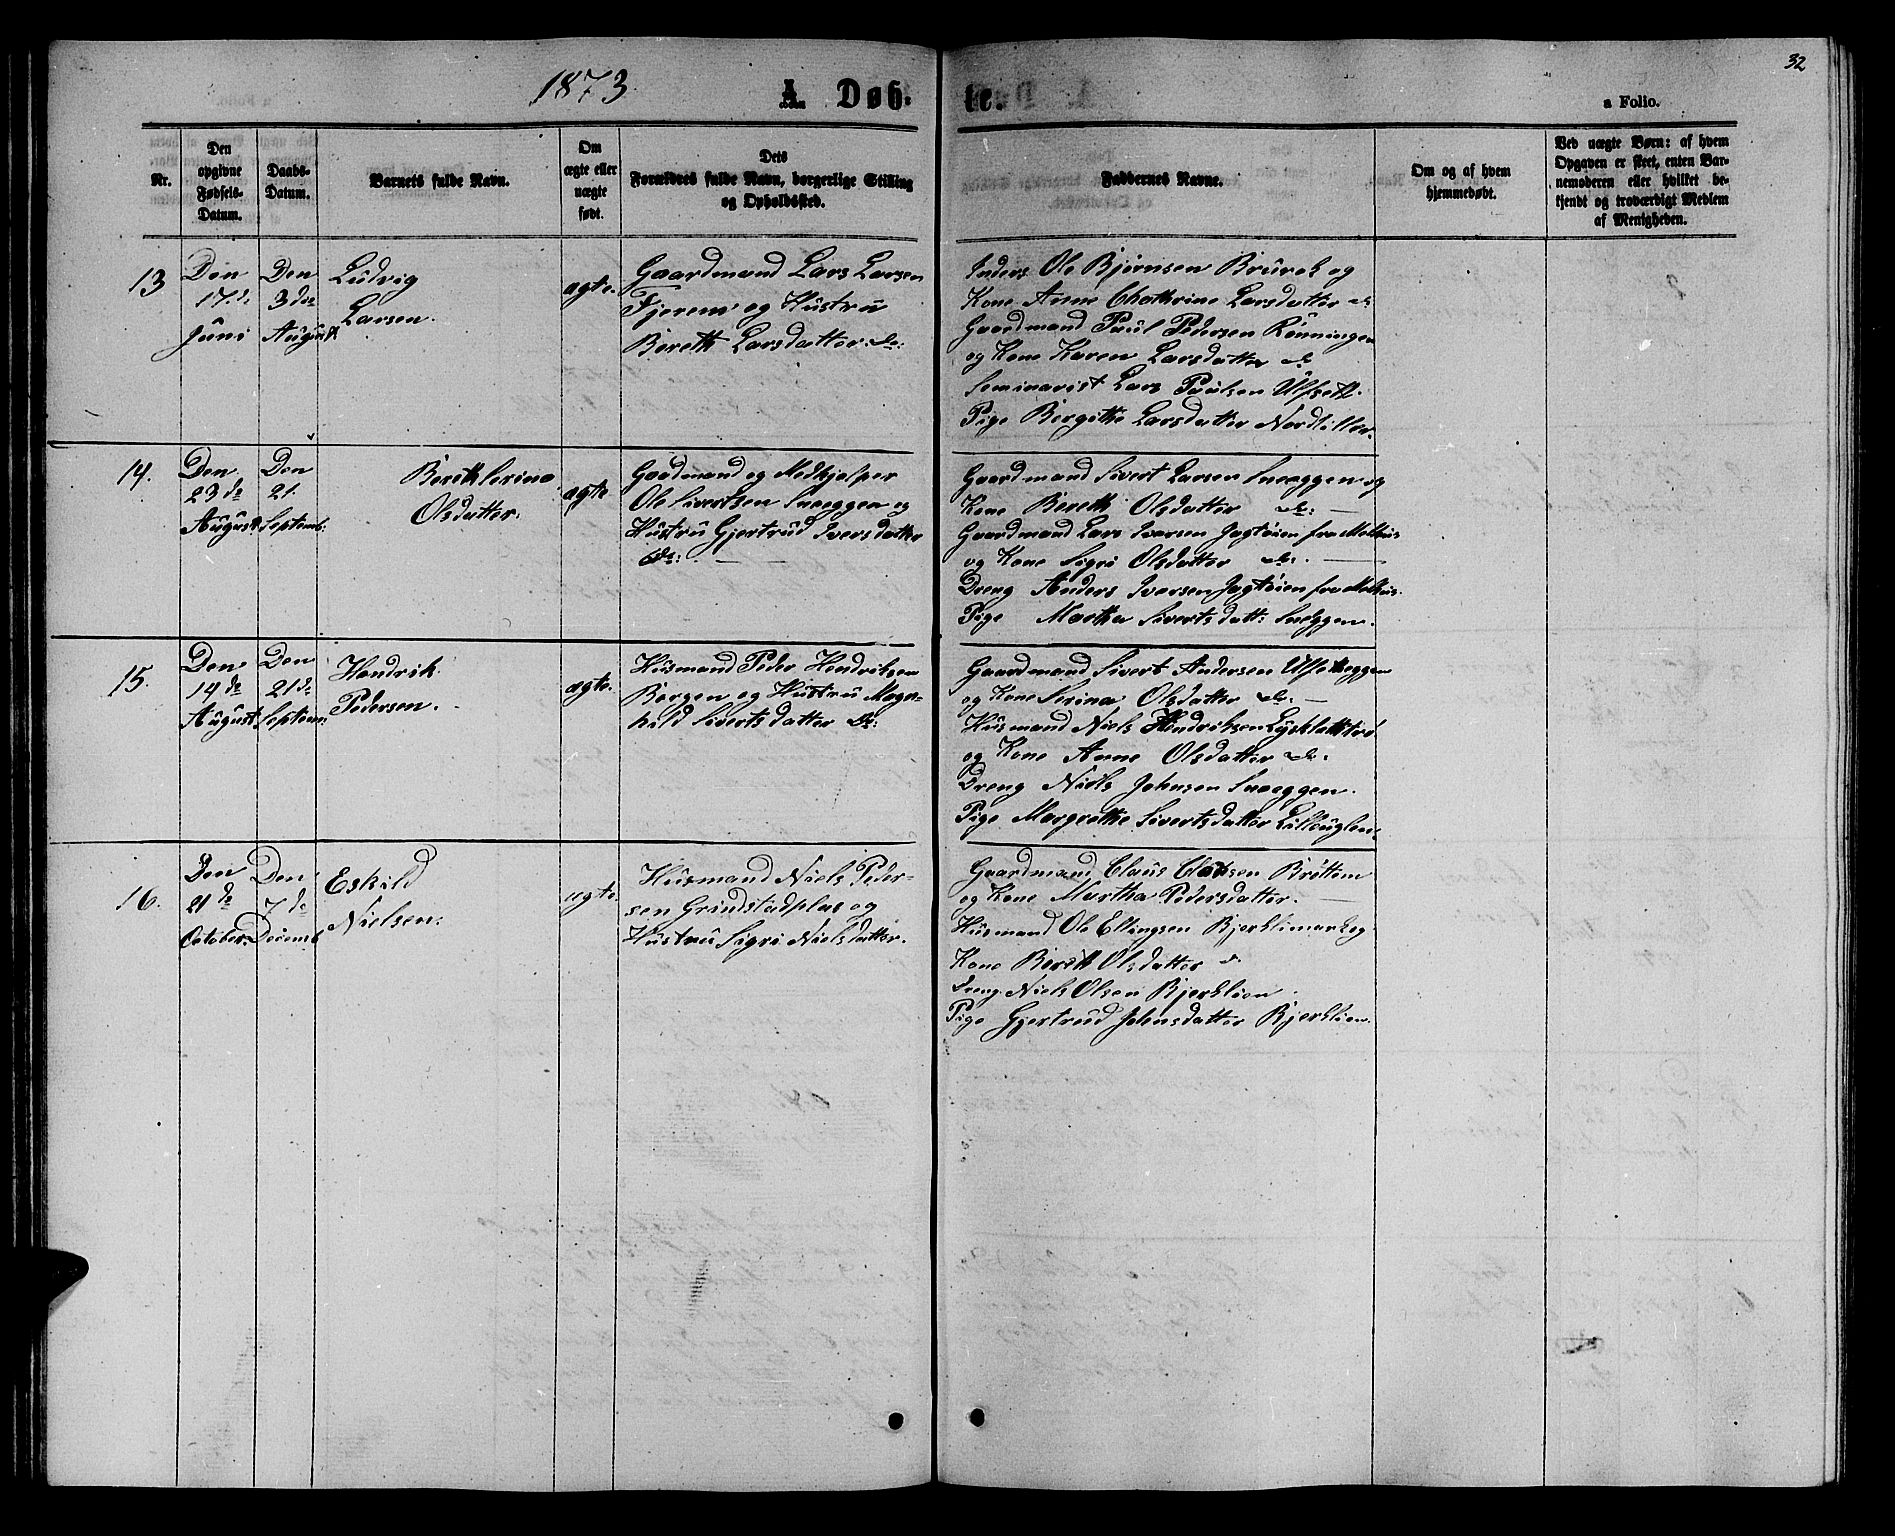 32
1873.
A. Døb-
te.
a Folio.
Nr.
Den
opgivne
Fødsels-
Datum.
Daabs-
Datum.
Barnets fulde Navn.
Om
ægte eller
uægte
født.
Dets
Forældres fulde Navn, borgerlige Stilling
og Opholdssted.
Faddernes Navne.
Om og af hvem
hjemmedøbt.
Ved uægte Børn: af hvem
Opgaven er skeet, enten Bar-
nemoderen eller hvilket be-
kjendt og troværdigt Medlem
af Menigheden.
13
Den
17de
Juni
Den
3die
August
Ludvig
Larsen.
ægte.
Gaardmand Lars Larsen
Fjerem og Hustru
Bereth Larsdatter do:
Ole Bjørnsen og
Kone Anne Chathrine Larsdatter do
Gaardmand Paul Pedersen Rönningen
og Kone Karen Larsdatter do
Seminarist Lars Paulsen Ulfseth.
Pige Bergithe Larsdatter Nordtiller.
14.
Den
23de
August
Den
21.
Septemb.
Bereth Serina
Olsdatter.
ægte
Gaardmand og Medhjelper
Ole Sivertsen Sneeggen og
Hustru Gjertrud Iversdatter
do:
Gaardmand Sivert Larsen Sneeggen og
Kone Bereth Olsdatter do:
Gaardmand Lars Iversen Jagtöien fra Melhus
og Kone Sigri Olsdatter do:
Dreng Anders Iversen Jagtöien fra Melhus.
Pige Martha Sivertsdatt: Sneggen.
15.
Den
14de
August
Den
21de
Septem.
Hendrik
Pedersen.
ægte.
Husmand Peder Hendriksen
Bergen og Hustru Magn-
hild Sivertsdatter do:
Gaardmand Sivert Andersen
og Kone Serina Olsdatter do.
Husmand Niels Hendriksen
og Kone Anne Olsdatter do.
Dreng Niels Johnsen Sneeggen.
Pige Margrethe Sivertsdatter Lilleuglen.
16.
Den
21de
October
Den
7de
Decemb
Eskild
Nielsen.
ægte.
Husmand Niels Peder-
sen Grindstadplas og
Hustru Sigri Nielsdatter.
Gaardmand Claus Clausen Bröttem
og Kone Martha Pedersdatter.
Husmand Ole Ellingsen Bjerklimark og
Kone Bereth Olsdatter do
Dreng Niels Olsen Bjerklien.
Pige Gjertrud Johnsdatter Bjerklien.